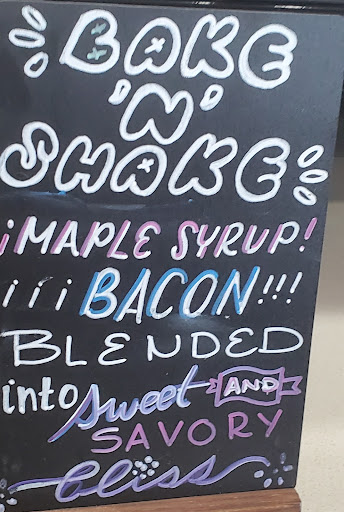 BAKE
'N'
SHAKE
¡MAPLE SYRUP!
¡¡¡BACON!!!
BLENDED
into sweet AND
SAVORY
bliss